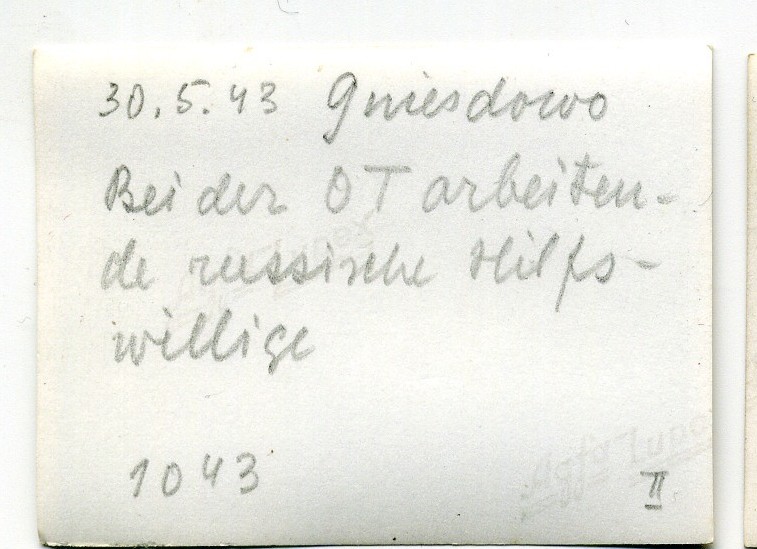 30.5.43 Gniesdowo
Bei der OT arbeiten-
de russische Hilfs-
willige
1043
II